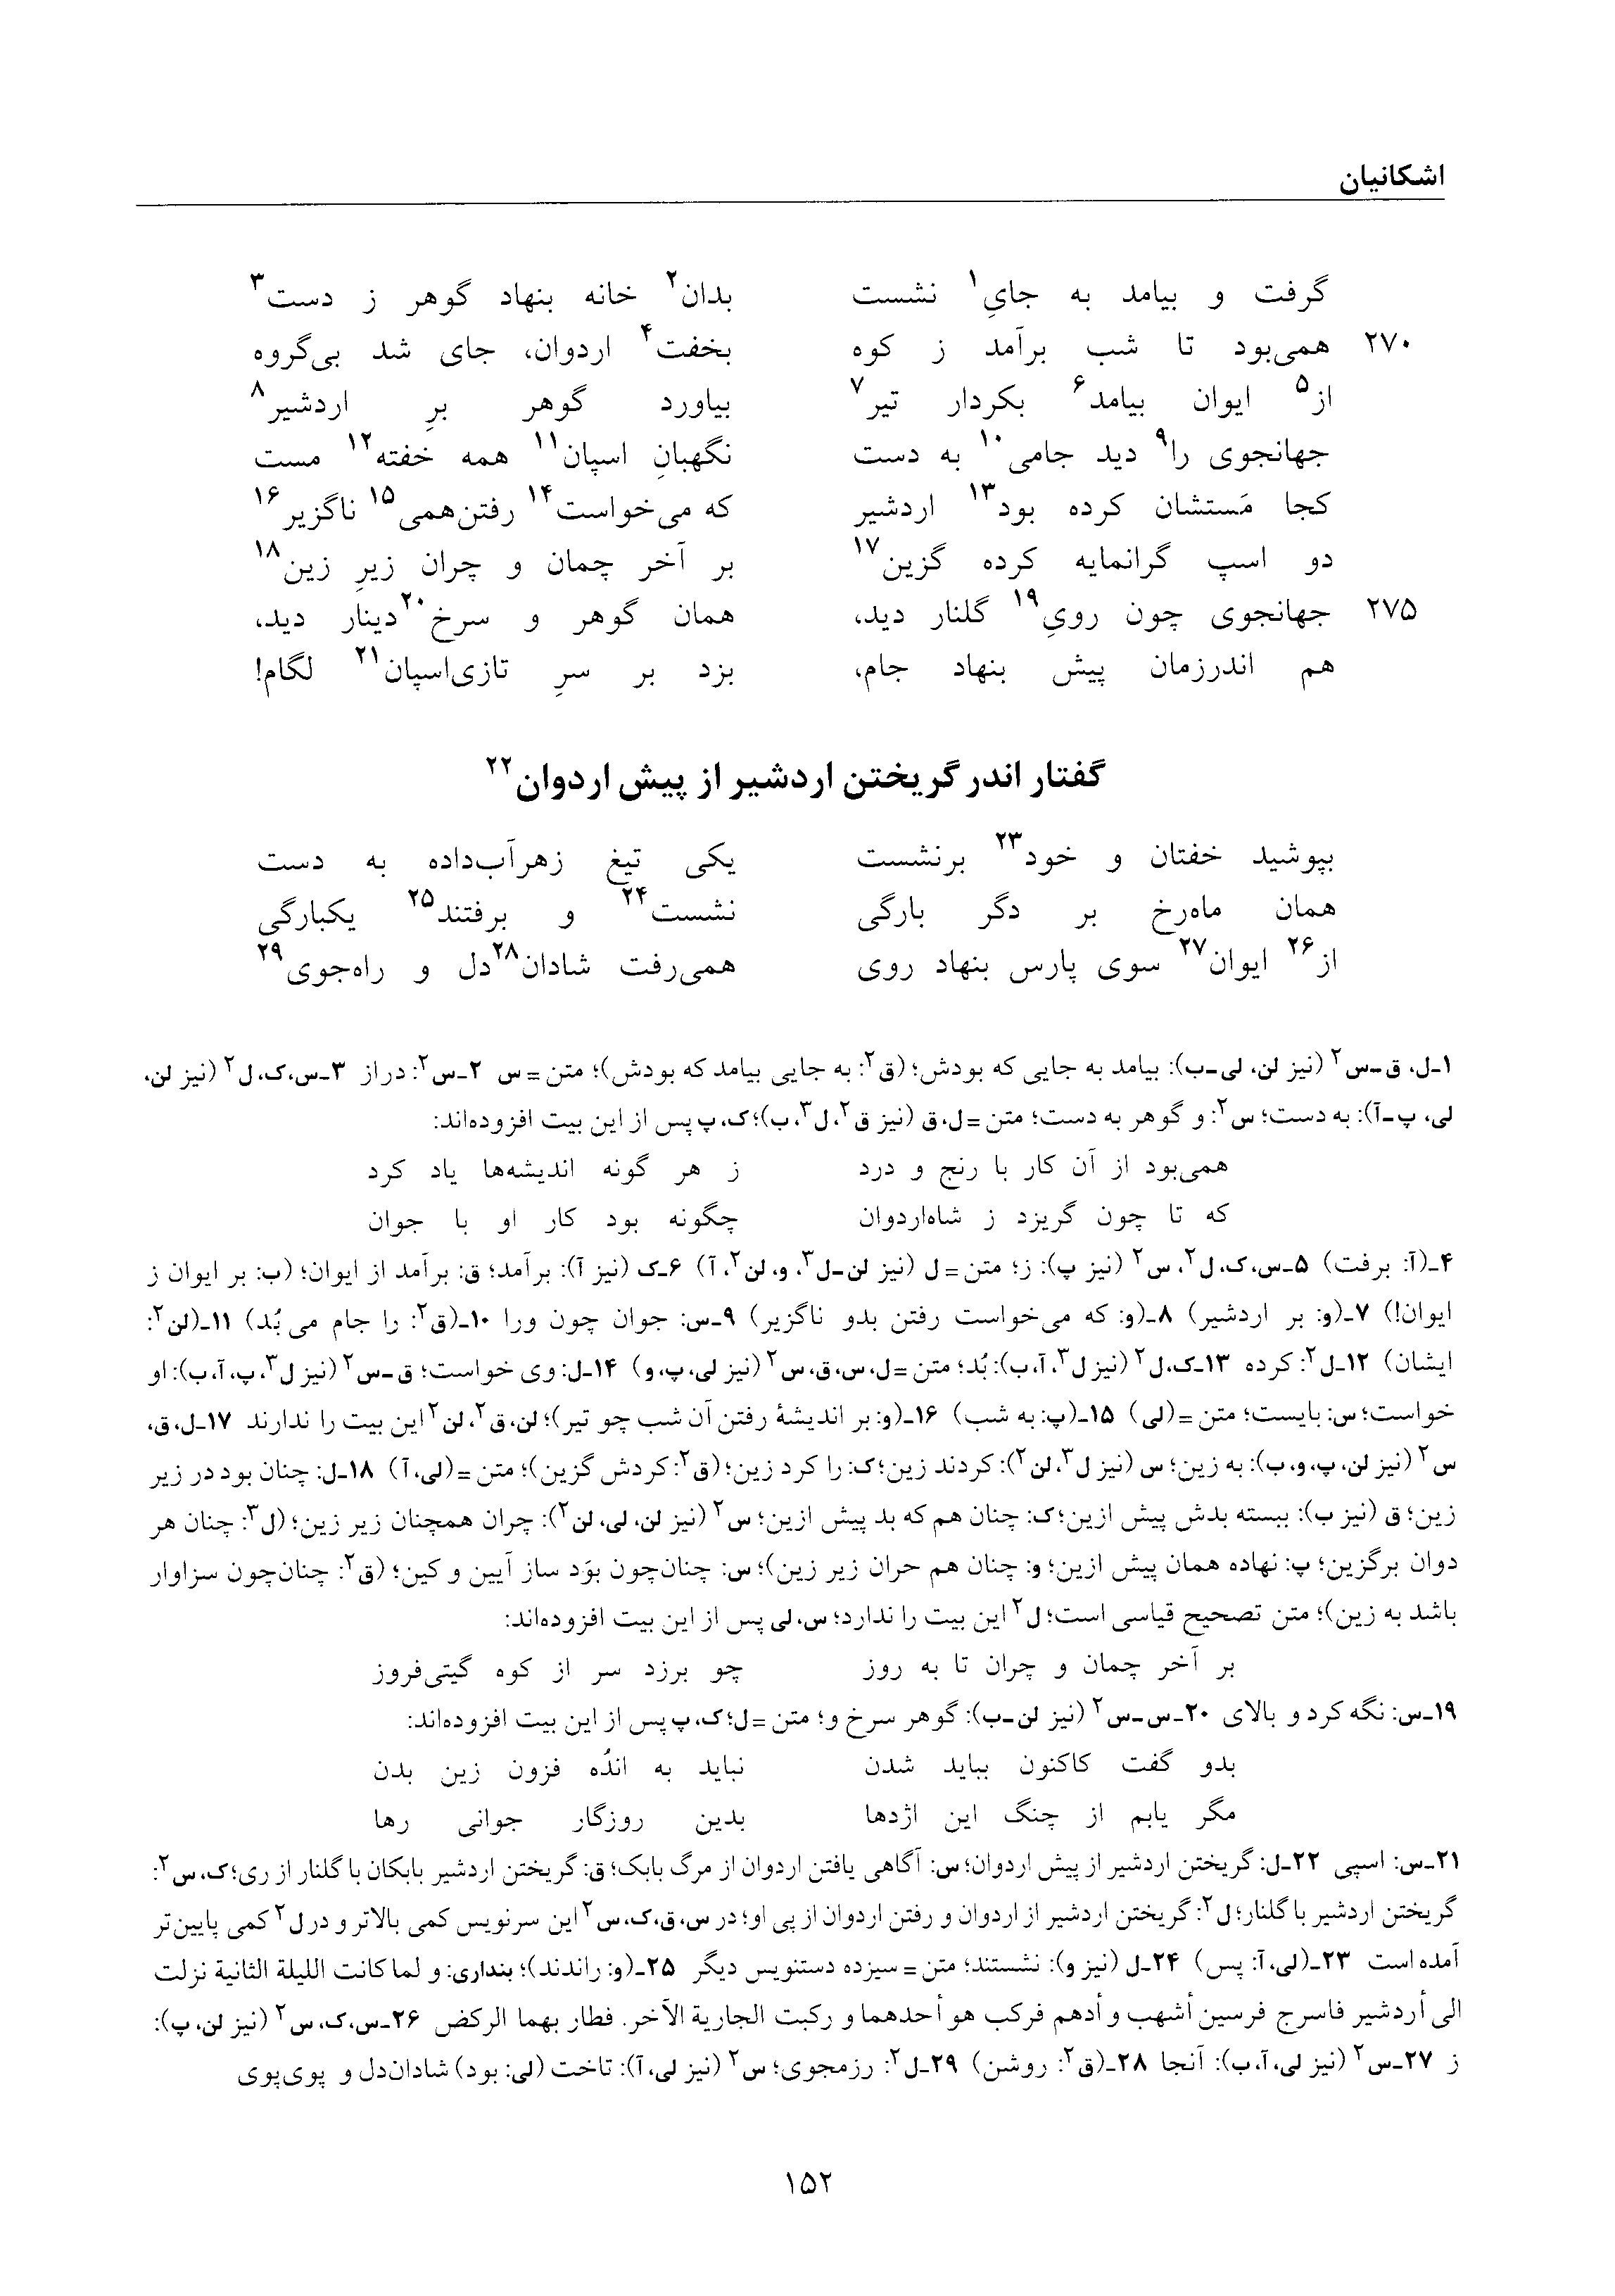 اشکانیان
گرفت و بیامد به جایِ۱ نشست بدان۲ خانه بنهاد گوهر ز دست۳
۲۷۰ همی‌بود تا شب برآمد ز کوه بخفت۴ اردوان، جای شد بی‌گروه
از۵ ایوان بیامد۶ بکردار تیر۷ بیاورد گوهر برِ اردشیر۸
جهانجوی را۹ دید جامی۱۰ به دست نگهبانِ اسپان۱۱ همه خفته۱۲ مست
کجا مَستشان کرده بود۱۳ اردشیر که می‌خواست۱۴ رفتن‌همی۱۵ ناگزیر۱۶
دو اسپ گرانمایه کرده گزین۱۷ بر آخر چمان و چران زیرِ زین۱۸
۲۷۵ جهانجوی چون رویِ۱۹ گلنار دید، همان گوهر و سرخ۲۰ دینار دید،
هم اندرزمان پیش بنهاد جام، بزد بر سرِ تازی‌اسپان۲۱ لگام!
گفتار اندر گریختن اردشیر از پیش اردوان۲۲
بپوشید خفتان و خود۲۳ برنشست یکی تیغ زهرآب‌داده به دست
همان ماه‌رخ بر دگر بارگی نشست۲۴ و برفتند۲۵ یکبارگی
از۲۶ ایوان۲۷ سوی پارس بنهاد روی همی‌رفت شادان۲۸دل و راه‌جوی۲۹
۱ـ‌ل، ق‌ـ‌س۲ (نیز لن، لی‌ـ‌ب): بیامد به جایی که بودش؛ (ق۲: به جایی بیامد که بودش)؛ متن=س ۲ـ‌س۲: دراز ۳ـ‌س،ک،ل۲ (نیز لن،
لی، پ‌ـ‌آ): به دست؛ س۲: و گوهر به دست؛ متن=ل،ق (نیز ق۲، ل۳، ب)؛ک، پ پس از این بیت افزوده‌اند:
همی‌بود از آن کار با رنج و درد ز هر گونه اندیشه‌ها یاد کرد
که تا چون گریزد ز شاه‌اردوان چگونه بود کار او با جوان
۴ـ‌(آ: برفت) ۵ـ‌س،ک، ل۲، س۲ (نیز پ): ز؛ متن=ل (نیز لن‌ـ‌ل۳، و، لن۲، آ) ۶ـ‌ک (نیز آ): برآمد؛ ق: برآمد از ایوان؛ (ب: بر ایوان ز
ایوان!) ۷ـ‌(و: بر اردشیر) ۸ـ‌(و: که می‌خواست رفتن بدو ناگزیر) ۹ـ‌س: جوان چون ورا ۱۰ـ‌(ق۲: را جام می بُد) ۱۱ـ‌(لن۲:
ایشان) ۱۲ـ‌ل۲: کرده ۱۳ـ‌ک،ل۲ (نیز ل۳، آ، ب): بُد؛ متن=ل،س،ق،س۲ (نیز لی،پ،و) ۱۴ـ‌ل: وی خواست؛ ق‌ـ‌س۲ (نیز ل۳، پ، آ، ب): او
خواست؛ س: بایست؛ متن=(لی) ۱۵ـ‌(پ: به شب) ۱۶ـ‌(و: بر اندیشهٔ رفتن آن شب چو تیر)؛ لن، ق۲، لن۲ این بیت را ندارند ۱۷ـ‌ل،ق،
س۲ (نیز لن، پ، و، ب): به زین؛ س (نیز ل۳، لن۲): کردند زین؛ک: را کرد زین؛ (ق۲: کردش گزین)؛ متن=(لی، آ) ۱۸ـ‌ل: چنان بود در زیر
زین؛ ق (نیز ب): ببسته بدش پیش ازین؛ک: چنان هم که بد پیش ازین؛ س۲ (نیز لن، لی، لن۲): چران همچنان زیر زین؛ (ل۳: چنان هر
دوان برگزین؛ پ: نهاده همان پیش ازین؛ و: چنان هم حران زیر زین)؛ س: چنان‌چون بوَد ساز آیین و کین؛ (ق۲: چنان‌چون سزاوار
باشد به زین)؛ متن تصحیح قیاسی است؛ ل۲ این بیت را ندارد؛ س، لی پس از این بیت افزوده‌اند:
بر آخر چمان و چران تا به روز چو برزد سر از کوه گیتی‌فروز
۱۹ـ‌س: نگه کرد و بالای ۲۰ـ‌س‌ـ‌س۲ (نیز لن‌ـ‌ب): گوهر سرخ و؛ متن=ل؛ک، پ پس از این بیت افزوده‌اند:
بدو گفت کاکنون بباید شدن نباید به اندُه فزون زین بدن
مگر یابم از چنگ این اژدها بدین روزگار جوانی رها
۲۱ـ‌س: اسپی ۲۲ـ‌ل: گریختن اردشیر از پیش اردوان؛ س: آگاهی یافتن اردوان از مرگ بابک؛ ق: گریختن اردشیر بابکان با گلنار از ری؛ک، س۲:
گریختن اردشیر با گلنار؛ ل۲: گریختن اردشیر از اردوان و رفتن اردوان از پی او؛ در س، ق، ک، س۲ این سرنویس کمی بالاتر و در ل۲ کمی پایین‌تر
آمده است ۲۳ـ‌(لی، آ: پس) ۲۴ـ‌ل (نیز و): نشستند؛ متن=سیزده دستنویس دیگر ۲۵ـ‌(و: راندند)؛ بنداری: و لما کانت اللیلة الثانیة نزلت
الی أردشیر فاسرج فرسین أشهب و أدهم فرکب هو أحدهما و رکبت الجاریة الآخر. فطار بهما الرکض ۲۶ـ‌س،ک، س۲ (نیز لن، پ):
ز ۲۷ـ‌س۲ (نیز لی، آ، ب): آنجا ۲۸ـ‌(ق۲: روشن) ۲۹ـ‌ل۲: رزمجوی؛ س۲ (نیز لی، آ): تاخت (لی: بود) شادان‌دل و پوی‌پوی
۱۵۲